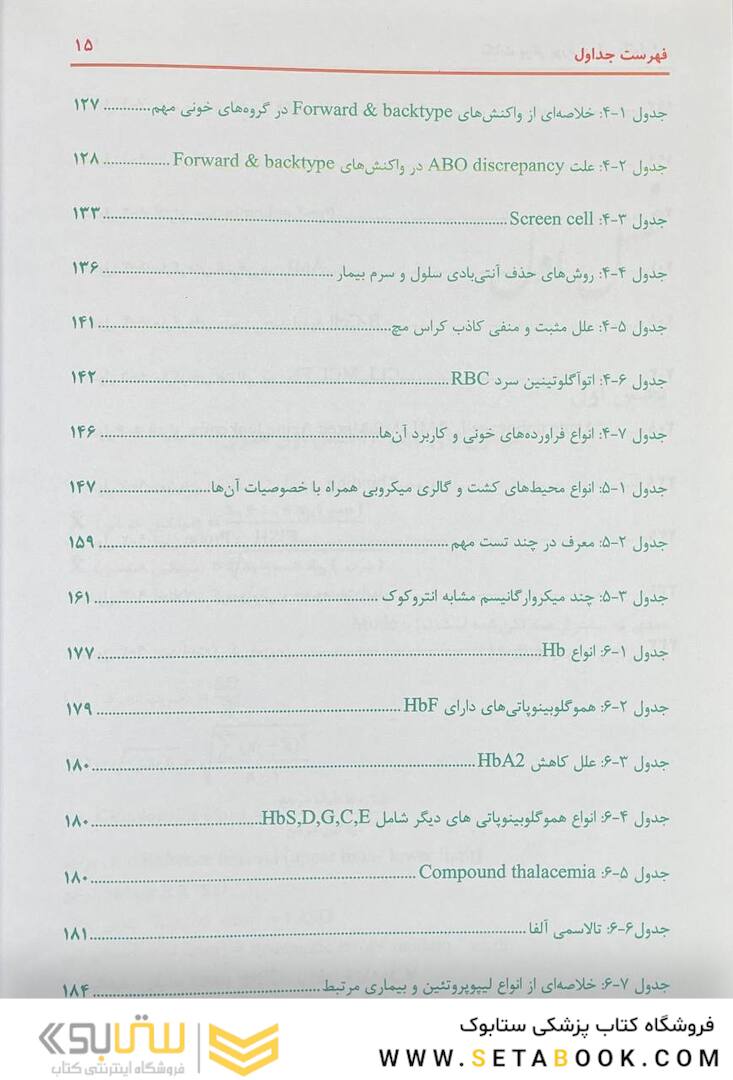 فهرست جداول ۱۵
جدول ۱-۴: خلاصه‌ای از واکنش‌های Forward & backtype در گروه‌های خونی مهم............ ۱۲۷
جدول ۲-۴: علت ABO discrepancy در واکنش‌های Forward & backtype ................. ۱۲۸
جدول ۳-۴: Screen cell ................. ۱۳۳
جدول ۴-۴: روش‌های حذف آنتی‌بادی سلول و سرم بیمار ................. ۱۳۶
جدول ۵-۴: علل مثبت و منفی کاذب کراس مچ................. ۱۴۱
جدول ۶-۴: اتوآگلوتینین سرد RBC ................. ۱۴۲
جدول ۷-۴: انواع فراورده‌های خونی و کاربرد آن‌ها................. ۱۴۶
جدول ۱-۵: انواع محیط‌های کشت و گالری میکروبی همراه با خصوصیات آن‌ها................. ۱۴۷
جدول ۲-۵: معرف در چند تست مهم ................. ۱۵۹
جدول ۳-۵: چند میکروارگانیسم مشابه انتروکوک ................. ۱۶۱
جدول ۱-۶: انواع Hb................. ۱۷۷
جدول ۲-۶: هموگلوبینوپاتی‌های دارای HbF ................. ۱۷۹
جدول ۳-۶: علل کاهش HbA2................. ۱۸۰
جدول ۴-۶: انواع هموگلوبینوپاتی های دیگر شامل HbS,D,G,C,E................. ۱۸۰
جدول ۵-۶: Compound thalacemia ................. ۱۸۰
جدول۶-۶: تالاسمی آلفا ................. ۱۸۱
جدول ۷-۶: خلاصه‌ای از انواع لیپوپروتئین و بیماری مرتبط ................. ۱۸۴
فروشگاه کتاب پزشکی ستابوک
WWW.SETABOOK.COM
ستابوک
فروشگاه اینترنتی کتاب